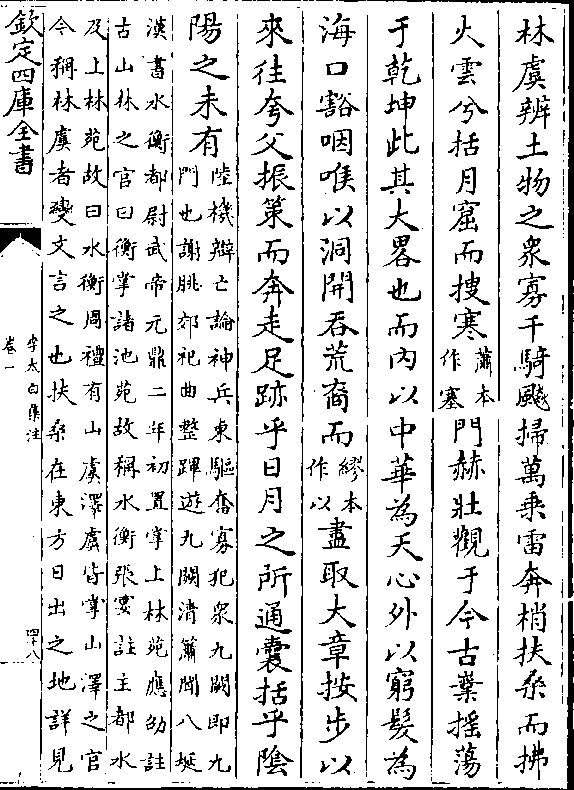 林虞辨土物之衆寡千騎飈掃萬乘雷奔梢扶桑而拂
火雲兮括月窟而搜寒蕭本作塞門赫壯觀于今古業揺蕩
于乾坤此其大畧也而内以中華為天心外以窮髮為
海口豁咽喉以洞開吞荒裔而繆本作以盡取大章按步以
來往夸父振策而奔走足跡乎日月之所通囊括乎陰
陽之未有陸機辯亡論神兵東驅奮寡犯衆九闕即九
門也謝朓郊祀曲整蹕遊九闕清簫聞八埏
漢書水衡都尉武帝元鼎二年初置掌上林苑應劭註
古山林之官曰衡掌諸池苑故稱水衡張晏註主都水
及上林苑故曰水衡周禮有山虞澤虞皆掌山澤之官
今稱林虞者變文言之也扶桑在東方日出之地詳見
欽定四庫全書
李太白集注
卷一
四十八